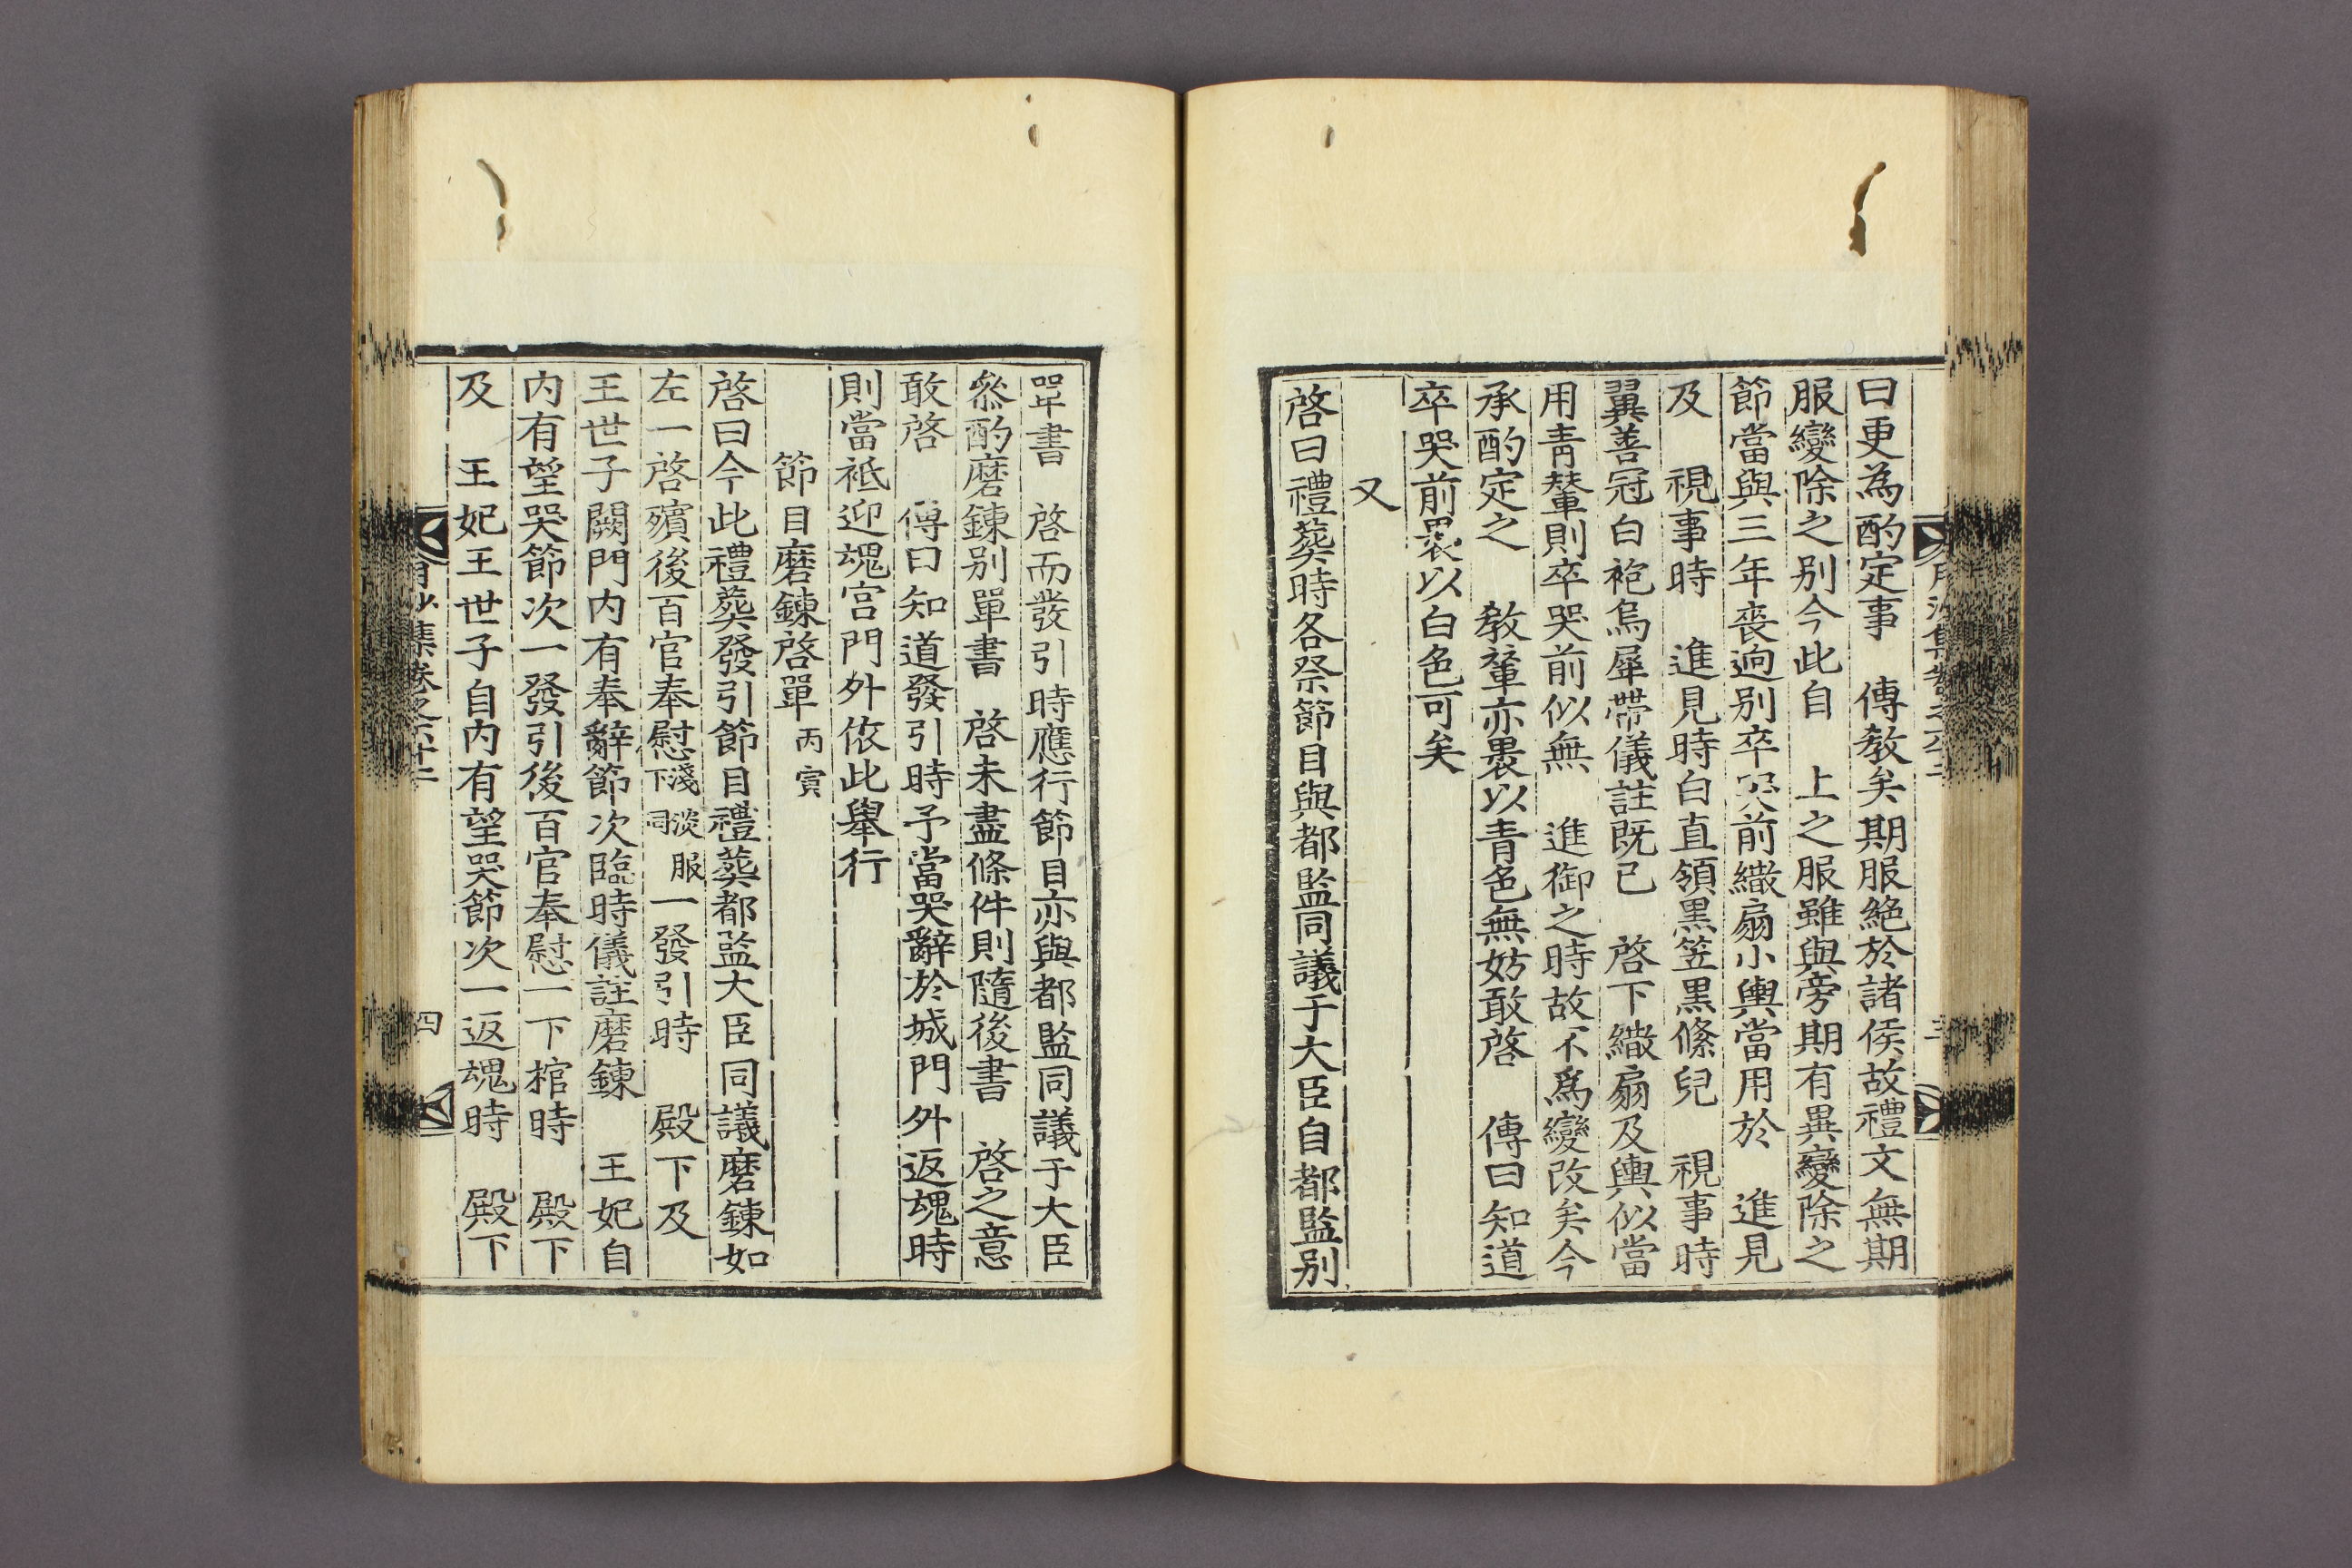 曰更為酌定事　傳敎矣期服絶於諸侯故禮文無期
服變除之别今此自　上之服雖與旁期有異變除之
節當與三年喪逈别卒哭前繖扇小輿當用於　進見
及　視事時　進見時白直領黑笠黑絛兒　視事時
翼善冠白袍烏犀帶儀註既已　啓下繖扇及輿似當
用青輦則卒哭前似無　進御之時故不爲變改矣今
承酌定之　敎輦亦裹以青色無妨敢啓　傳曰知道
卒哭前裹以白色可矣
又
啓曰禮葬時各祭節目與都監同議于大臣自都監别
單書　啓而發引時應行節目亦與都監同議于大臣
叅酌磨鍊别單書　啓未盡條件則隨後書　啓之意
敢啓　傳曰知道發引時予當哭辭於城門外返魂時
則當祗迎魂宮門外依此舉行
節目磨鍊啓單丙寅
啓曰今此禮葬發引節目禮葬都監大臣同議磨鍊如
左一啓殯後百官奉慰淺淡服下同一發引時　殿下及
王世子闕門内有奉辭節次臨時儀註磨鍊　王妃自
内有望哭節次一發引後百官奉慰一下棺時　殿下
及　王妃王世子自内有望哭節次一返魂時　殿下
月沙集卷之六十二
四